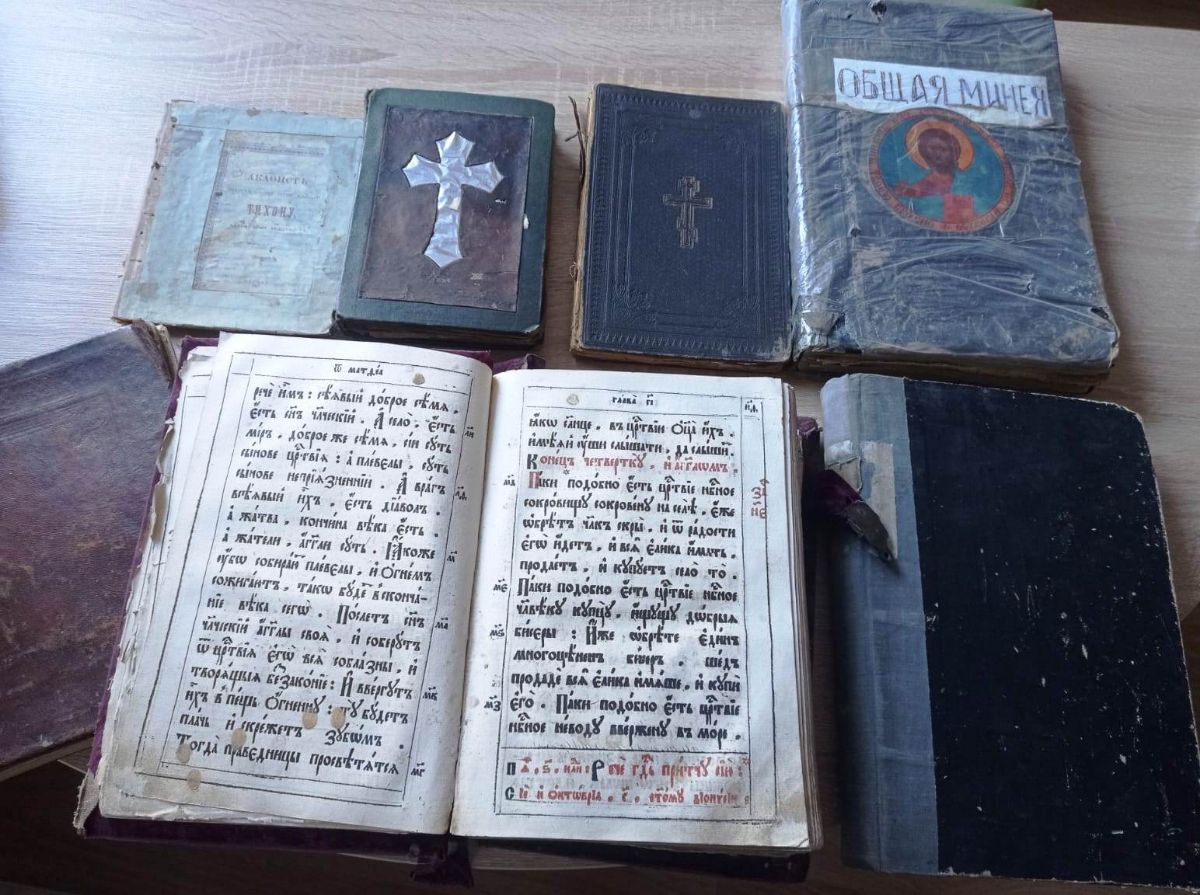 ОБЩАЯ МИНЕЯ
АКАѲИСТЪ
ТИХОНУ
Ѿ МАТѲЕА
рече и҆̀мъ : сѣѧвый доброе сѣмѧ ,
є҆́сть сн҃ъ чл҃ческїй . А село̀ є҆́сть
мїръ . доброе же сѣмѧ , сїи суть
сынове цр҃твїѧ : а плевелы , суть
сынове непрїѧзненнїи . А врагъ
всѣѧвый и҆́хъ , є҆́сть дїаволъ .
а жатва , кончина вѣка є҆́сть .
а жатели , а҆́гг҃ли суть . Ꙗ҆́коже
ѹ҆̀бо собираю́т плевелы , и҆̀ ѻ҆гне́мъ
сожигаютъ , такѡ будетъ в̾сконча́-
нїе вѣка сегѡ̀ . Послетъ сн҃ъ
чл҃ческїй а҆́гг҃лы своѧ̀ , и҆̀ соберутъ
ѿ цр҃твїѧ є҆гѡ̀ всѧ̀ соблазны , и҆̀
творѧщыѧ беззаконїе : И҆̀ ввергутъ
и҆́хъ в̾ пещь ѻ҆́гненну : ту̀ будетъ
плачь и҆̀ скрежетъ зубѡмъ .
Тогда̀ праведницы просвѣтѧтсѧ
глава гі
ꙗ҆́кѡ слн҃це , въ цр҃твїи ѻ҆ц҃а̀ и҆́хъ .
и҆мѣѧ́й ѹ҆́ши слышати , да слышитъ .
Конецъ четвертку ,
Паки подобно є҆́сть цр҃твїе нб҃ное
сокровищу сокровену на селѣ̀ , є҆́же
ѡ҆брѣ́тъ чл҃къ скры , и҆̀ ѿ радости
є҆гѡ̀ и҆де́тъ , и҆̀ всѧ̀ є҆ли́ка и҆́мать ,
продаетъ , и҆̀ купуетъ село̀ то̀ .
Паки подобно є҆́сть цр҃твїе нб҃ное
чл҃вѣку купцу , и҆́щущу дѡбрыѧ
бисеры : И҆́же ѡ҆брѣ́те є҆ди́нъ
многоцѣненъ бисеръ . шедъ
продаде всѧ̀ є҆ли́ка и҆мѧ́ше , и҆̀ купи
є҆го̀ . Паки подобно є҆́сть цр҃твїе
нб҃ное неводу ввержену въ море .
Рече гд҃ь притчу сїю :
и҆̀ ѻ҆ктѡ́врїа ,